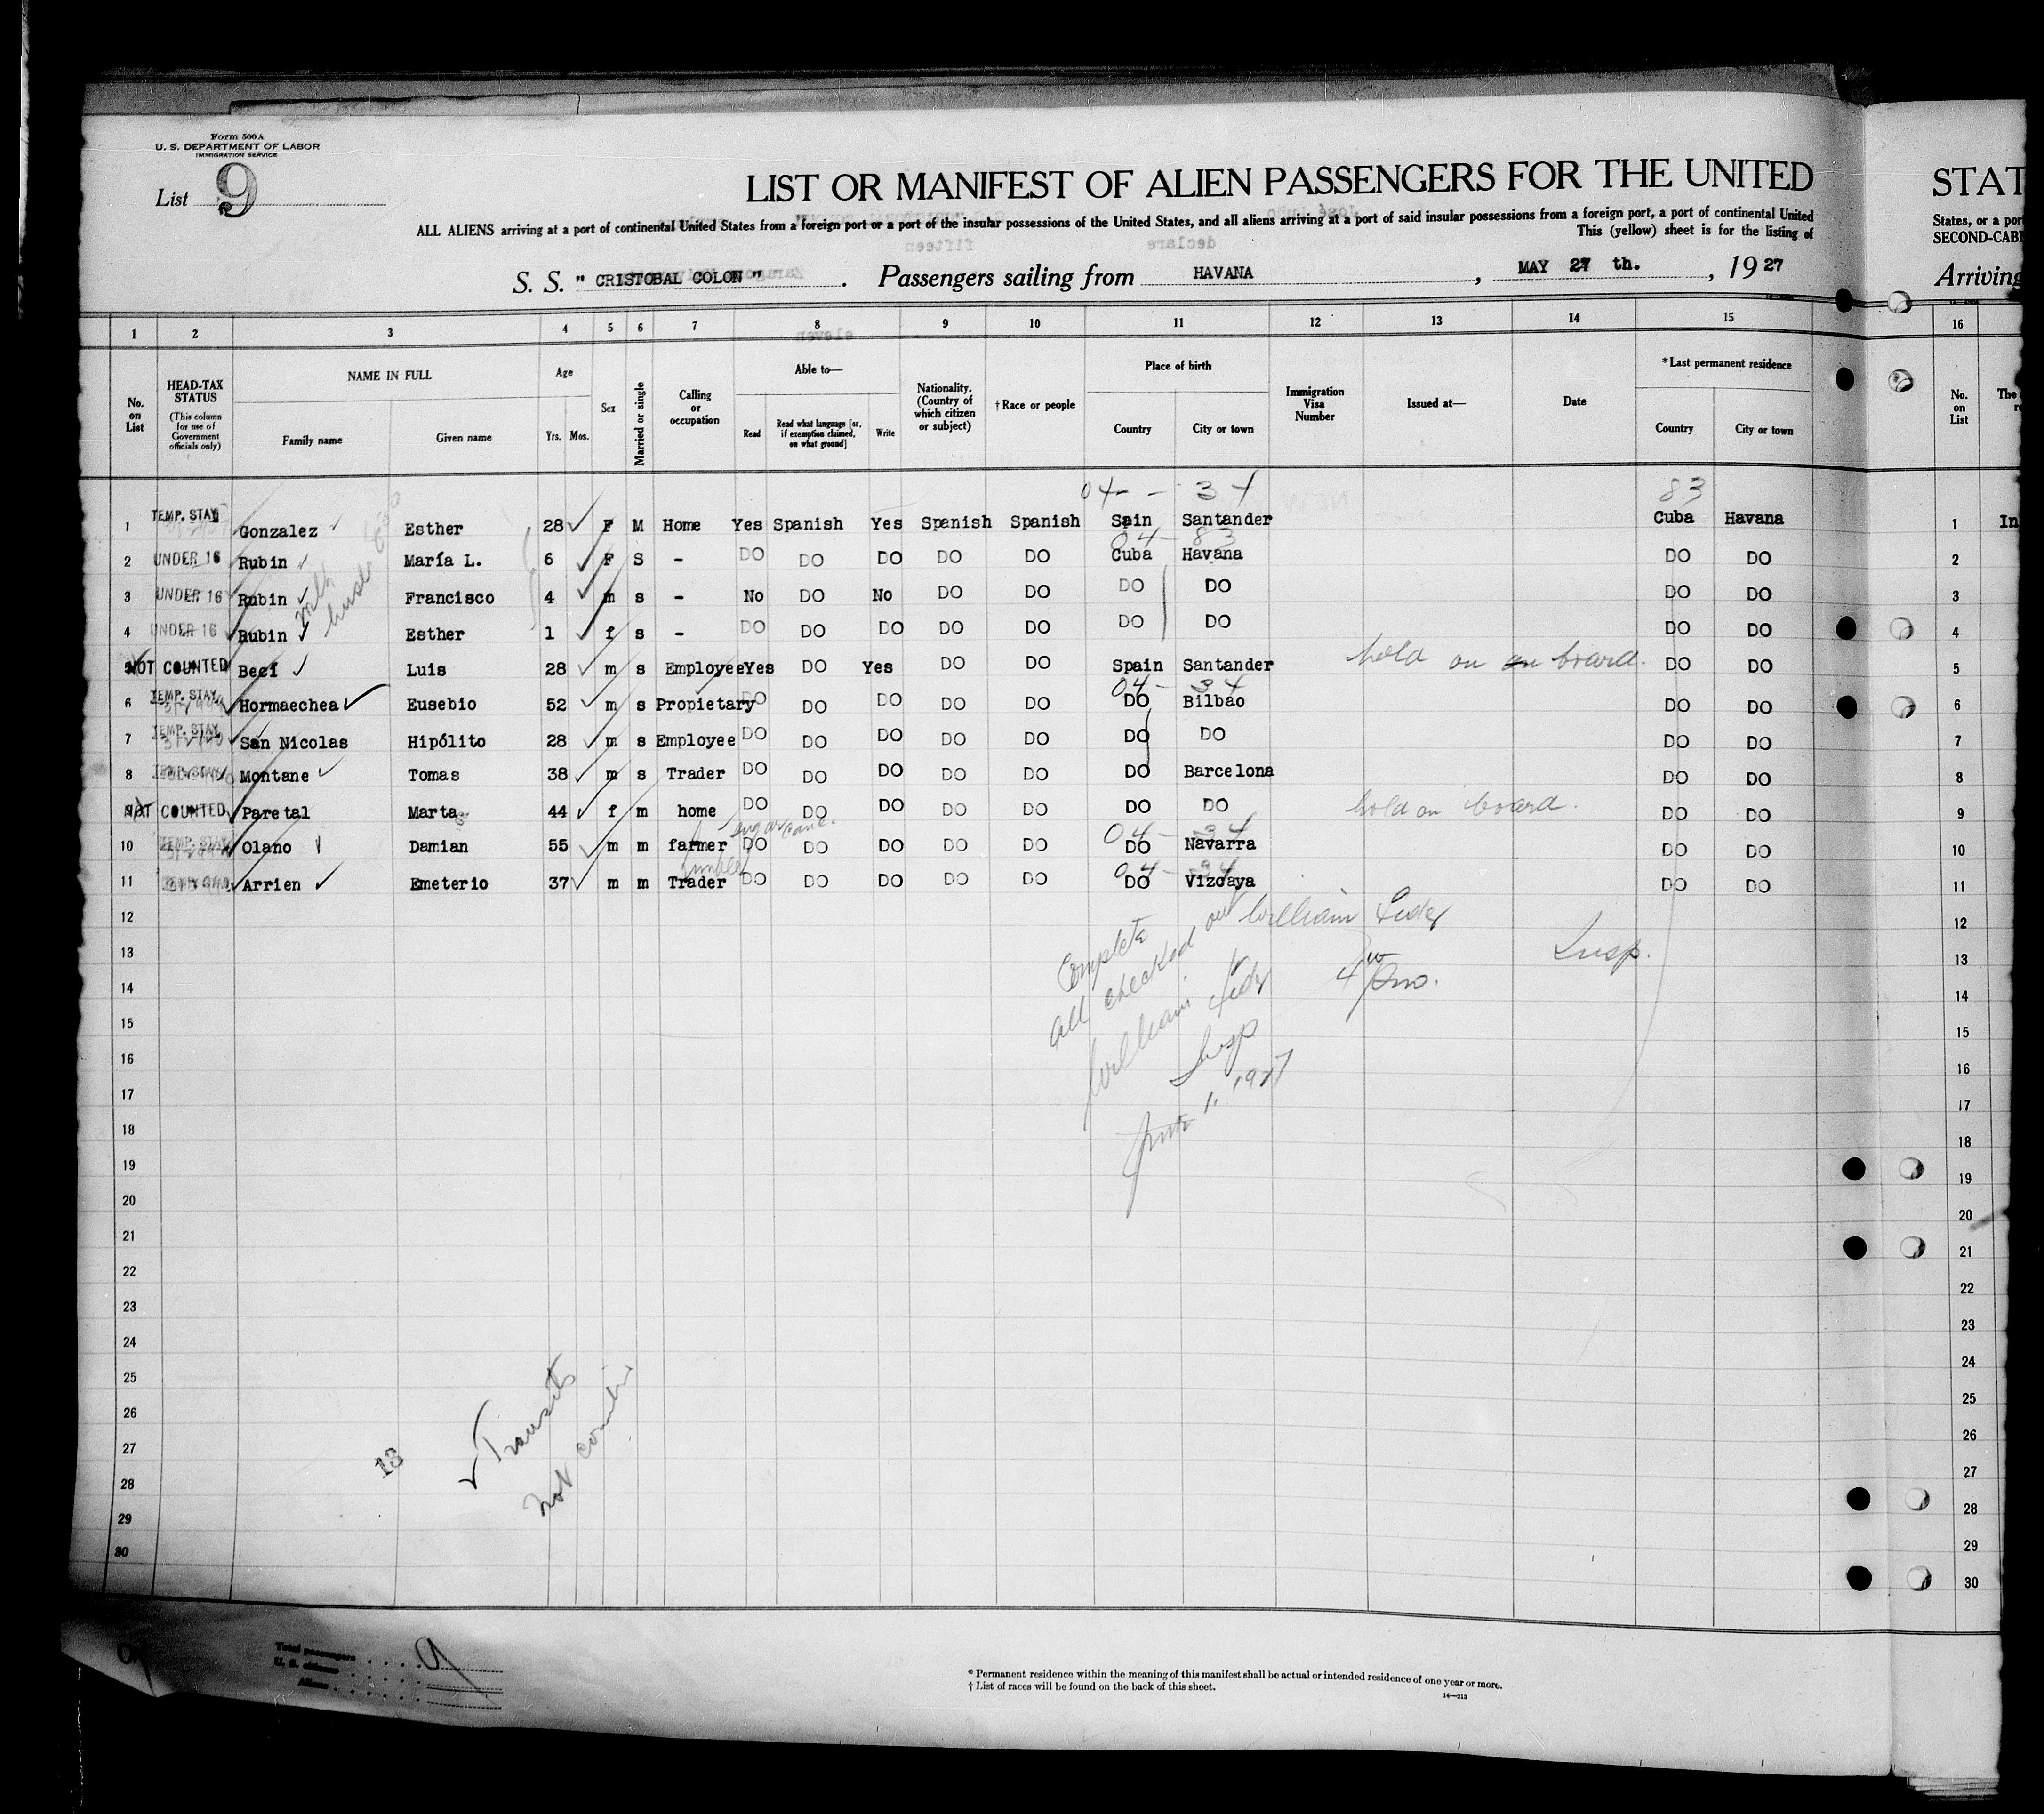 Form 500A
U. S. DEPARTMENT OF LABOR
IMMIGRATION SERVICE
List 9
LIST OR MANIFEST OF ALIEN PASSENGERS FOR THE UNITED
STAT
ALL ALIENS arriving at a port of continental United States from a foreign port or a port of the insular possessions of the United States, and all aliens arriving at a port of said insular possessions from a foreign port, a port of continental United
States, or a por
This (yellow) sheet is for the listing of
SECOND-CABI
S. S. " CRISTOBAL COLON " . Passengers sailing from HAVANA , MAY 27 th. , 19 27
Arriving
1 2 3 4 5 6 7 8 9 10 11 12 13 14 15 16
No. on List
HEAD-TAX STATUS (This column for use of Government officials only)
NAME IN FULL
Family name Given name
Age
Yrs. Mos.
Sex
Married or single
Calling or occupation
Able to—
Read Read what language [or, if exemption claimed, on what ground] Write
Nationality. (Country of which citizen or subject)
† Race or people
Place of birth
Country City or town
Immigration Visa Number
Issued at—
Date
*Last permanent residence
Country City or town
No. on List
04 - - 34 83
1 TEMP. STAY Gonzalez Esther 28 F M Home Yes Spanish Yes Spanish Spanish Spain Santander Cuba Havana 1 In
04 - 83
2 UNDER 16 Rubin María L. 6 F S - DO DO DO DO DO Cuba Havana DO DO 2
3 UNDER 16 Rubin Francisco 4 m s - No DO No DO DO DO DO DO DO 3
4 UNDER 16 Rubin Esther 1 f s - DO DO DO DO DO DO DO DO DO 4
5 NOT COUNTED Beci Luis 28 m s Employee Yes DO Yes DO DO Spain Santander hold on board. DO DO 5
04 - 34
6 TEMP. STAY Hormaechea Eusebio 52 m s Propietary DO DO DO DO DO DO Bilbao DO DO 6
7 TEMP. STAY San Nicolas Hipólito 28 m s Employee DO DO DO DO DO DO DO DO DO 7
8 TEMP. STAY Montane Tomas 38 m s Trader DO DO DO DO DO DO Barcelona DO DO 8
9 NOT COUNTED Paretal Marta 44 f m home DO DO DO DO DO DO DO hold on board. DO DO 9
sugar cane.
04 - 34
10 TEMP. STAY Olano Damian 55 m m farmer DO DO DO DO DO DO Navarra DO DO 10
04 - 34
11 Arrien Emeterio 37 m m Trader DO DO DO DO DO DO Vizcaya DO DO 11
12 12
13 13
14 14
15 15
16 16
17 17
18 18
19 19
20 20
21 21
22 22
23 23
24 24
25 25
26 26
27 27
28 28
29 29
30 30
Complete
all checked out
William
Insp
June 1, 1927
William
Insp.
Transits
not
13
Total passengers . . . . 9
U. S. citizens . . . . .
Aliens . . . . . .
* Permanent residence within the meaning of this manifest shall be actual or intended residence of one year or more.
† List of races will be found on the back of this sheet.
14—213